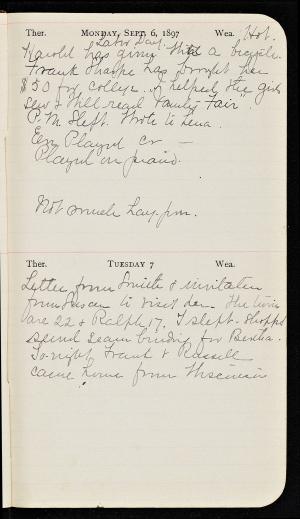 Ther. MONDAY, SEPT. 6, 1897 Wea. Hot.
Labor Day.
Harold has given a bicycle.
Frank Sharpe has bought her
$50 for college. I helped the girls
sew & Will read "Vanity Fair".
P.M. Slept. Wrote to Lena.
Eve Played Cr —
Played on piano.
Not much Lax, pm.
Ther. TUESDAY 7 Wea.
Letter from Smith & invitation
from to visit her. The twins
are 22 & Ralph 17. I slept. Shopped
seam binding for Bertha.
To-night Frank & Russell
came home from Wisconsin